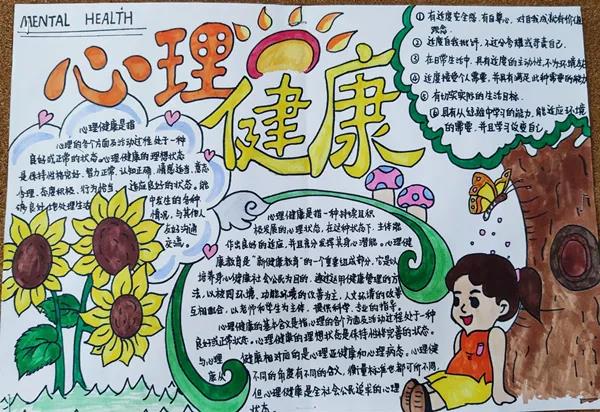 MENTAL HEALTH
心理
健康
① 有适度安全感,有自尊心,对自我成就有价值
观念.
② 适度自我批评,不过分夸耀或苛责自己.
③ 在日常生活中,具有适度的主动性,不为环境左右
④ 适度接受个人需要,并具有满足此种需要的能力
⑤ 有切实实际的生活目标.
⑥ 具有从经验中学习的能力,能适应环境
的需要,并且学习改变自己.
心理健康是指
心理的各个方面及活动过程处于一种
良好或正常的状态。心理健康的理想状态
是保持性格完好、智力正常、认知正确、情感适当、意志
合理、态度积极、行为恰当、适应良好的状态。能
够良好的处理生活
中发生的各种
情况,与其他人
友好沟通
交流。
心理健康是指一种持续且积
极发展的心理状态,在这种状态下,主体能
作出良好的适应,并且充分发挥其身心潜能。心理健
康教育是"新健康教育"的一个重要组成部分,它是以
培养身心健康社会公民为目的,通过运用健康管理的方
法,以校园环境、功能环境的改善为主,人文环境的改善
互相融合,以老师和学生为主体,提供科学、专业的指导。
心理健康的基本含义是指心理的各个方面及活动过程处于一种
良好或正常状态。心理健康的理想状态是保持性格完善的状态。
与心理
健康相对应的是心理亚健康和心理病态。心理健
康从
不同的角度有不同的含义,衡量标准也都可所不同,
但心理健康是全社会公民追求的心理
状态